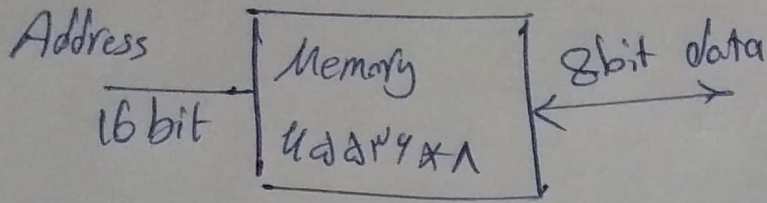 Address
16 bit
Memory
۶۵۵۳۶*۸
8bit data